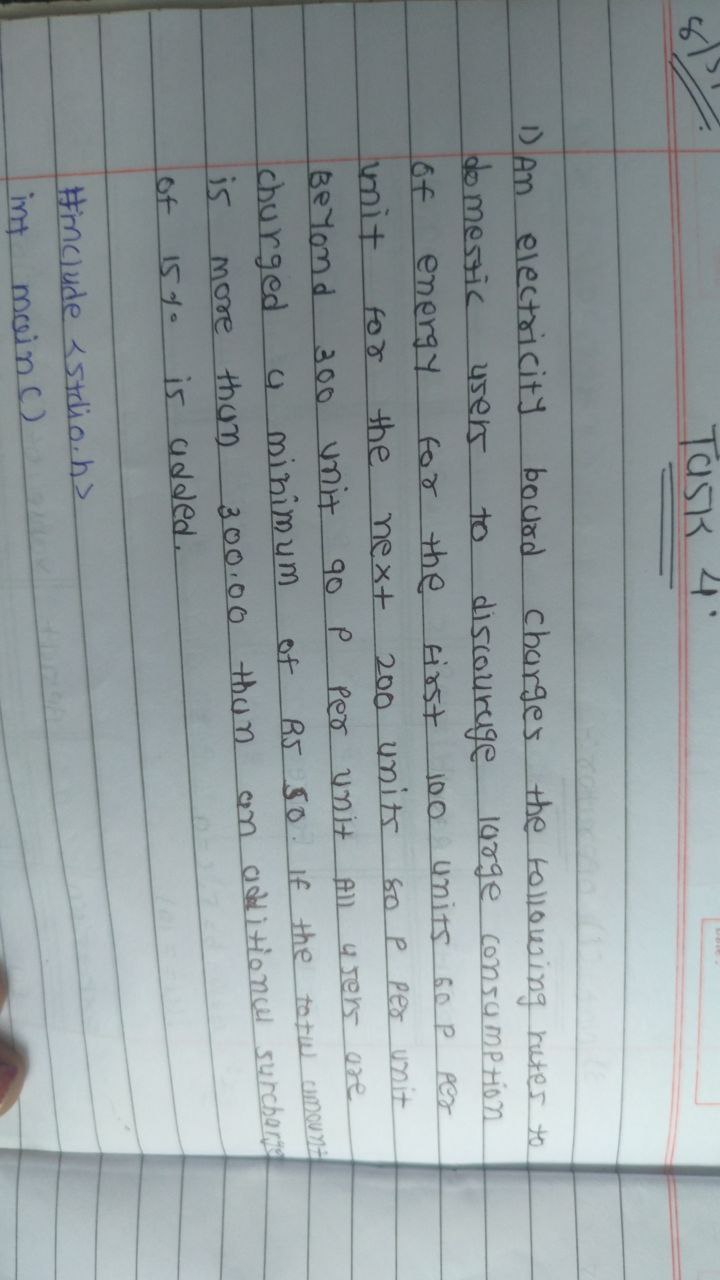 Task 4.
1) An electricity board charges the following rates to
domestic users to discourage large consumption
of energy for the first 100 units 60 P per
unit for the next 200 units 80 P per unit
Beyond 300 unit 90 P per unit All users are
charged a minimum of RS 50. If the total amount
is more than 300.00 than an additional surcharge
of 15% is added.
#include <stdio.h>
int main()